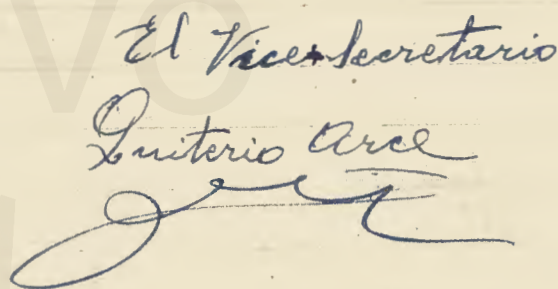 El Vice-Secretario
Quiterio Arce